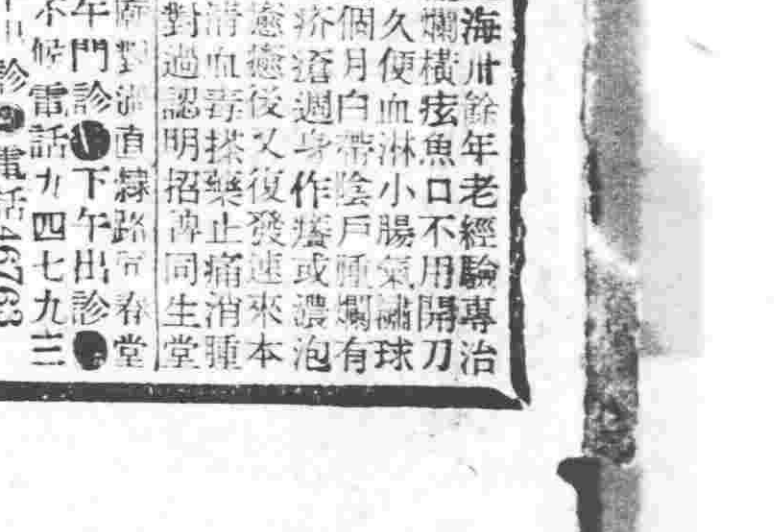 海卅餘年老經驗專治
爛橫痃魚口不用開刀
久便血淋小腸氣繡球
個月白帶陰戶腫爛有
疥瘡週身作癢或濃泡
癒後又復發速來本
清血毒搽藥止痛消腫
對過認明招牌同生堂
對過直隸路 春堂
年門診 下午出診
不候電話九四七九三
診 電話46763